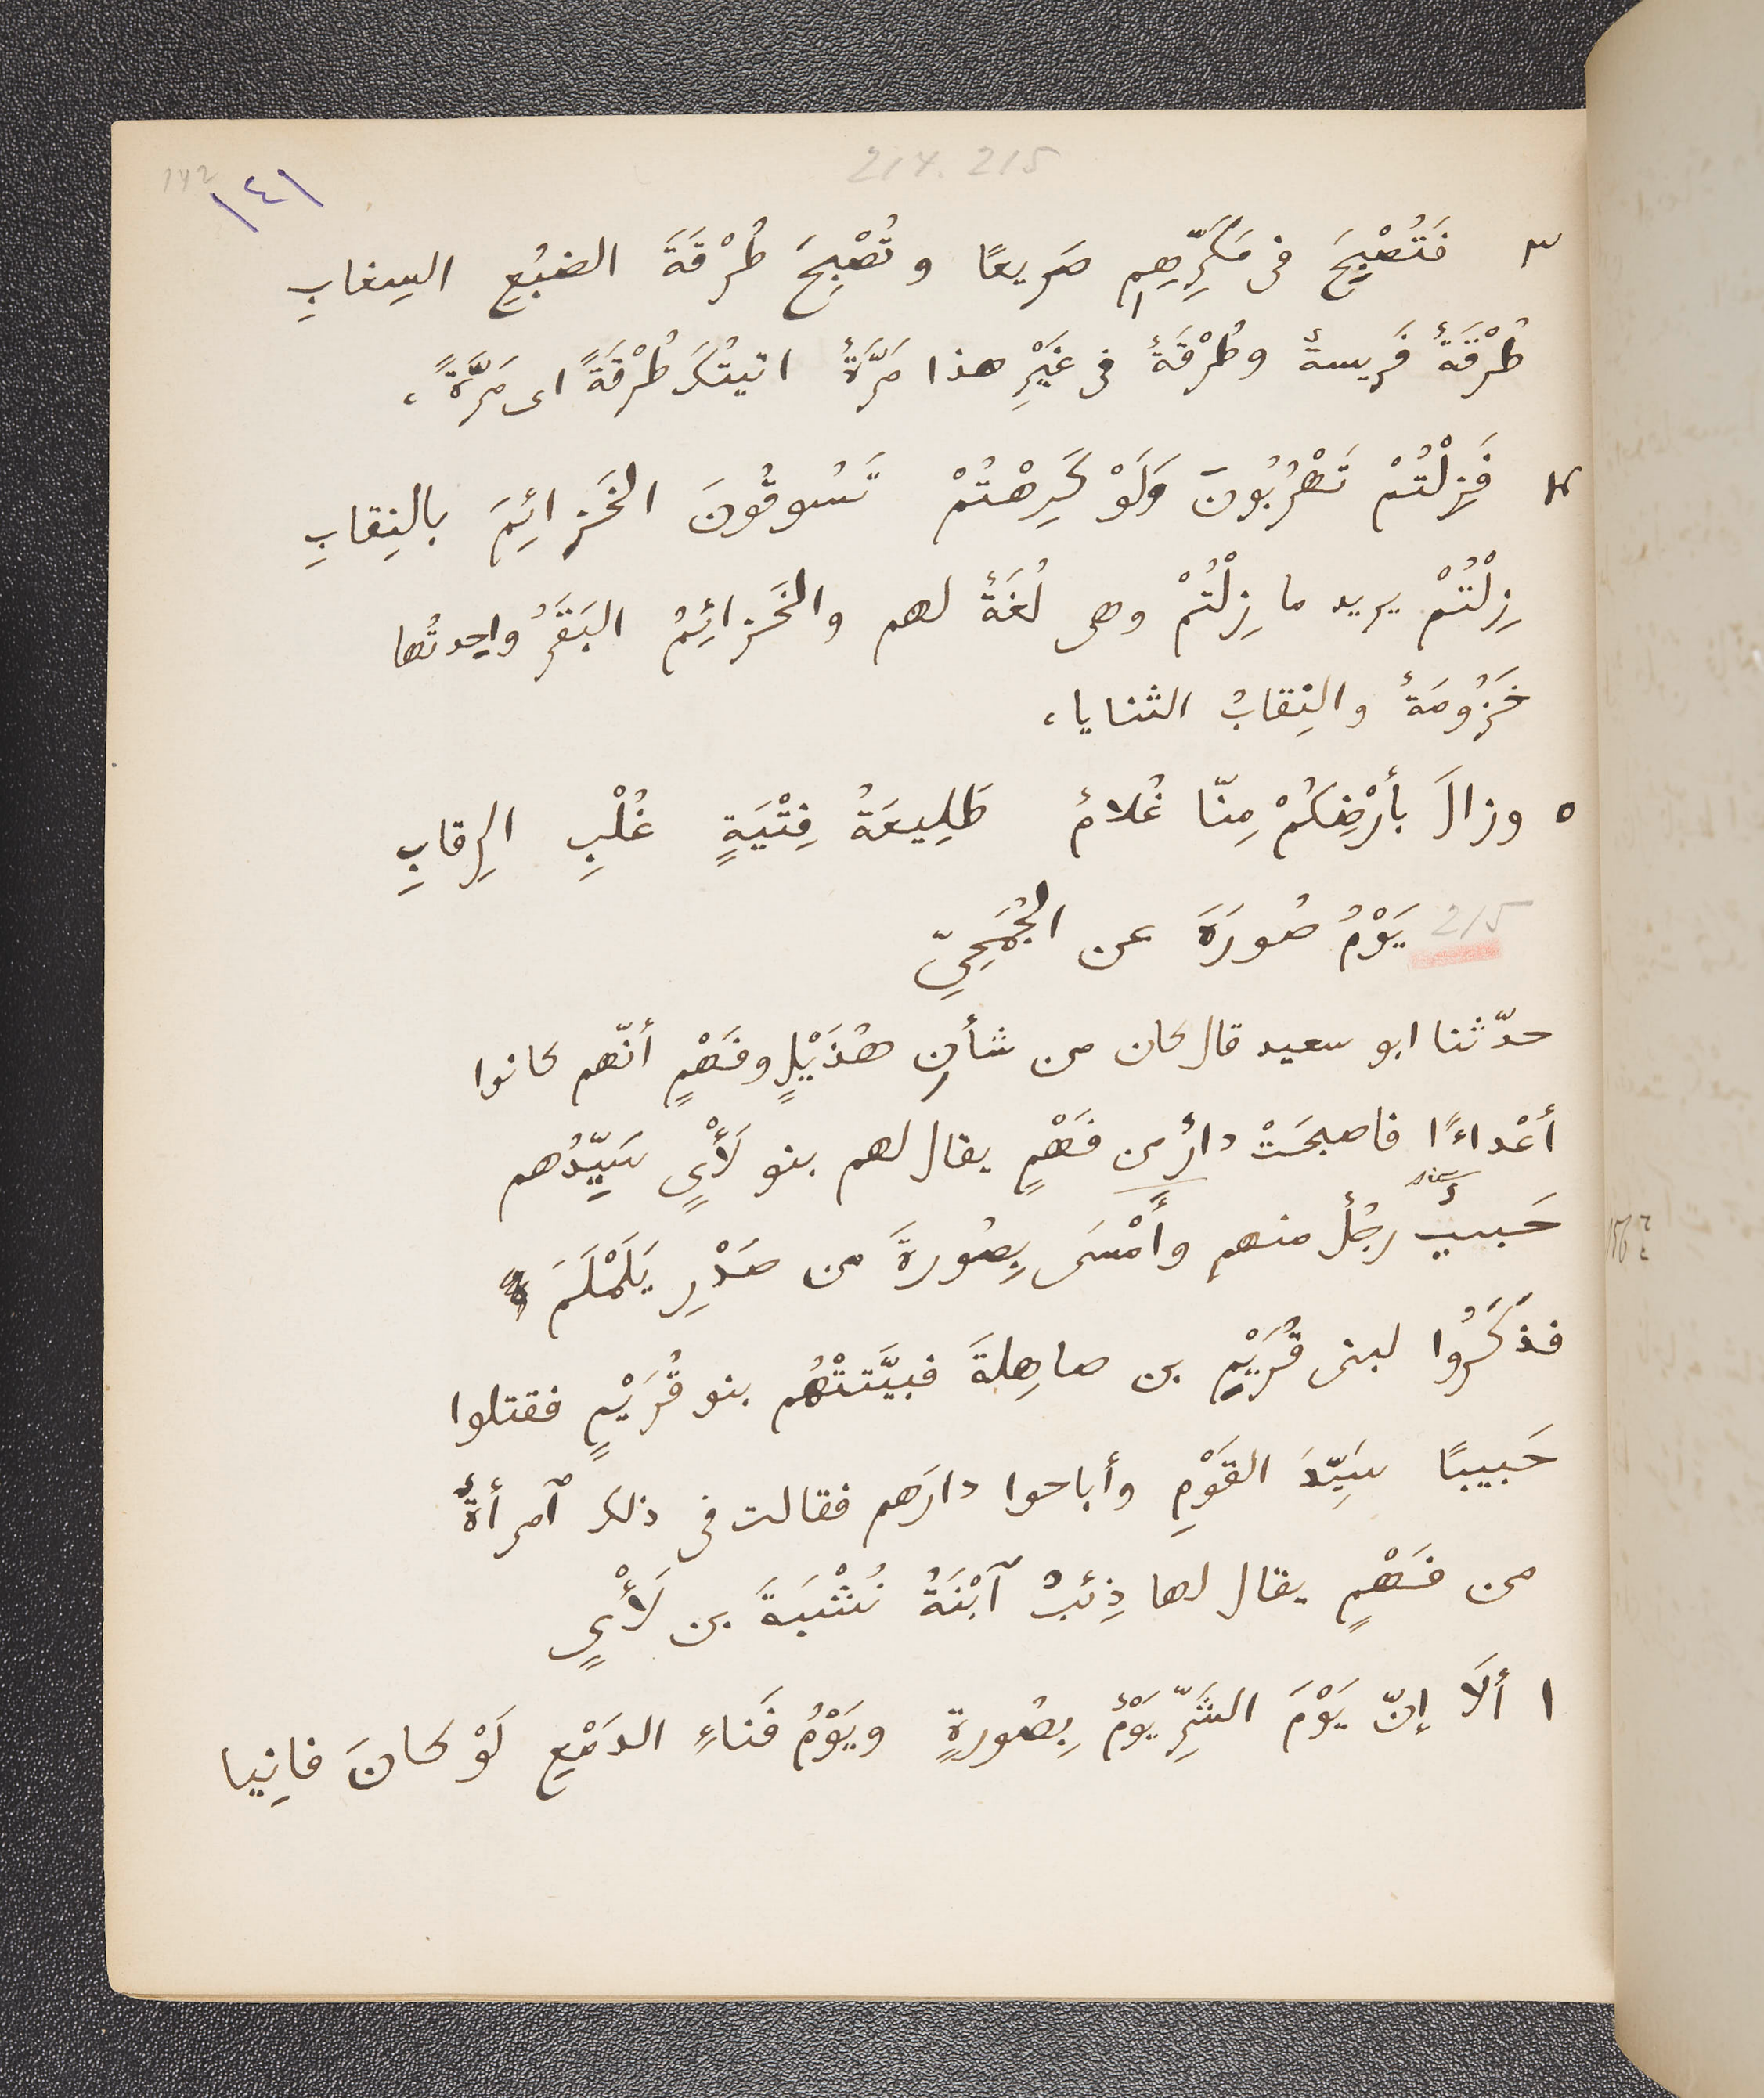 214. 215
142
١٤١
٣ فَتُصْبِحَ فى مَكَرِّهِمِ صَريعًا وتُصْبِحَ طُرْقَةَ الضبُعِ السِغابِ
طُرْقَةٌ فَريسةٌ وطُرْقَةٌ فى غَيْرِ هذا مَرَّةٌ اتيتُكَ طُرْقَةً اى مَرَّةً،
٤ فَزِلْتُمْ تَهْرُبُونَ وَلَوْ كَرِهْتُمْ تَسُوقُونَ الخَزائِمَ بالنِقابِ
زِلْتُمْ يريد ما زِلْتُمْ وهى لُغَةٌ لهم والخَزائِمُ البَقَرُ واحِدتُها
خَزُومَةٌ والنِقابُ الثنايا،
٥ وزالَ بأَرْضِكُمْ مِنّا غُلامٌ طَلِيعَةُ فِتْيَةٍ غُلْبِ الرِقابِ
215 يَوْمُ صُورَةَ عن الجُمَحِيِّ
حدّثنا ابو سعيد قال كان من شأنِ هُذَيْلٍ وفَهْمٍ أنّهم كانوا
أَعْداءً فاصبحَتْ دارٌ من فَهْمٍ يقال لهم بنو لَأْيٍ سَيِّدُهم
sic
حَبيبٌ رجُلٌ منهم وأَمْسَى بِصُورةَ من صَدْرِ يَلَمْلَمَ
فذَكَرُوا لبنى قُرَيْمِ بن صاهِلةَ فبيَّتتْهُم بنو قُرَيْمٍ فقتلوا
حَبيبًا سَيِّدَ القَوْمِ وأباحوا دارَهم فقالت فى ذلك ٱمرأةٌ
من فَهْمٍ يقال لها ذِئبُ ٱبْنَةُ نُشْبَةَ بن لَأْيٍ
١ أَلَا إنّ يَوْمَ الشَرِّ يَوْمٌ بِصُورةٍ ويَوْمُ فَناءِ الدَمْعِ لَوْ كانَ فانِيا